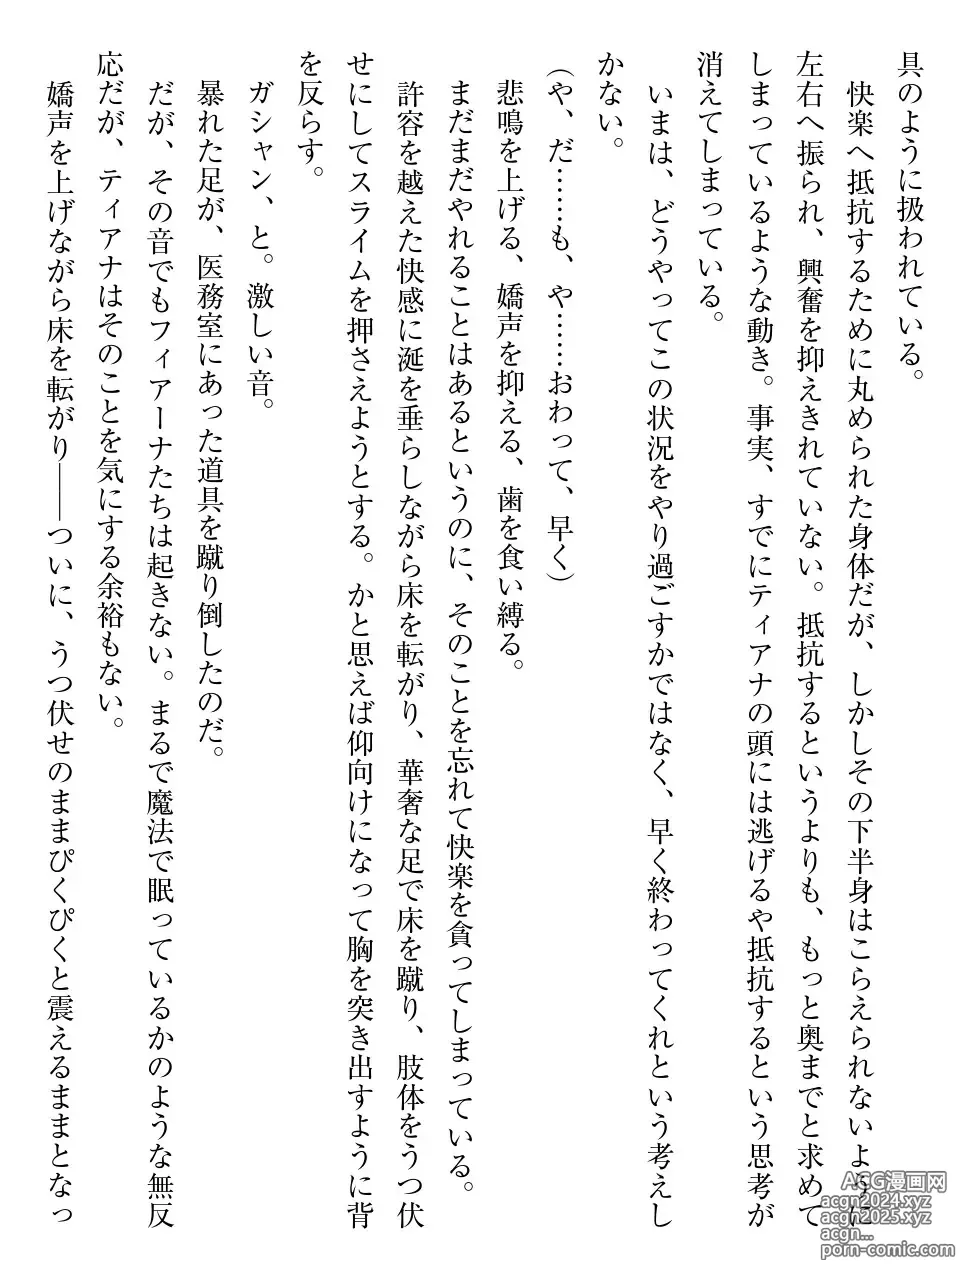 具のように扱われている。
快楽へ抵抗するために丸められた身体だが、しかしその下半身はこらえられないように
左右へ振られ、興奮を抑えきれていない。抵抗するというよりも、もっと奥までと求めて
しまっているような動き。事実、すでにティアナの頭には逃げるや抵抗するという思考が
消えてしまっている。
いまは、どうやってこの状況をやり過ごすかではなく、早く終わってくれという考えし
かない。
（や、だ……も、や……おわって、早く）
悲鳴を上げる、嬌声を抑える、歯を食い縛る。
まだまだやれることはあるというのに、そのことを忘れて快楽を貪ってしまっている。
許容を越えた快感に涎を垂らしながら床を転がり、華奢な足で床を蹴り、肢体をうつ伏
せにしてスライムを押さえようとする。かと思えば仰向けになって胸を突き出すように背
を反らす。
ガシャン、と。激しい音。
暴れた足が、医務室にあった道具を蹴り倒したのだ。
だが、その音でもフィアーナたちは起きない。まるで魔法で眠っているかのような無反
応だが、ティアナはそのことを気にする余裕もない。
嬌声を上げながら床を転がり――ついに、うつ伏せのままぴくぴくと震えるままとなっ
ACG漫画网
acgn2024.xyz
acgn2025.xyz
acgn...
porn-comic.com